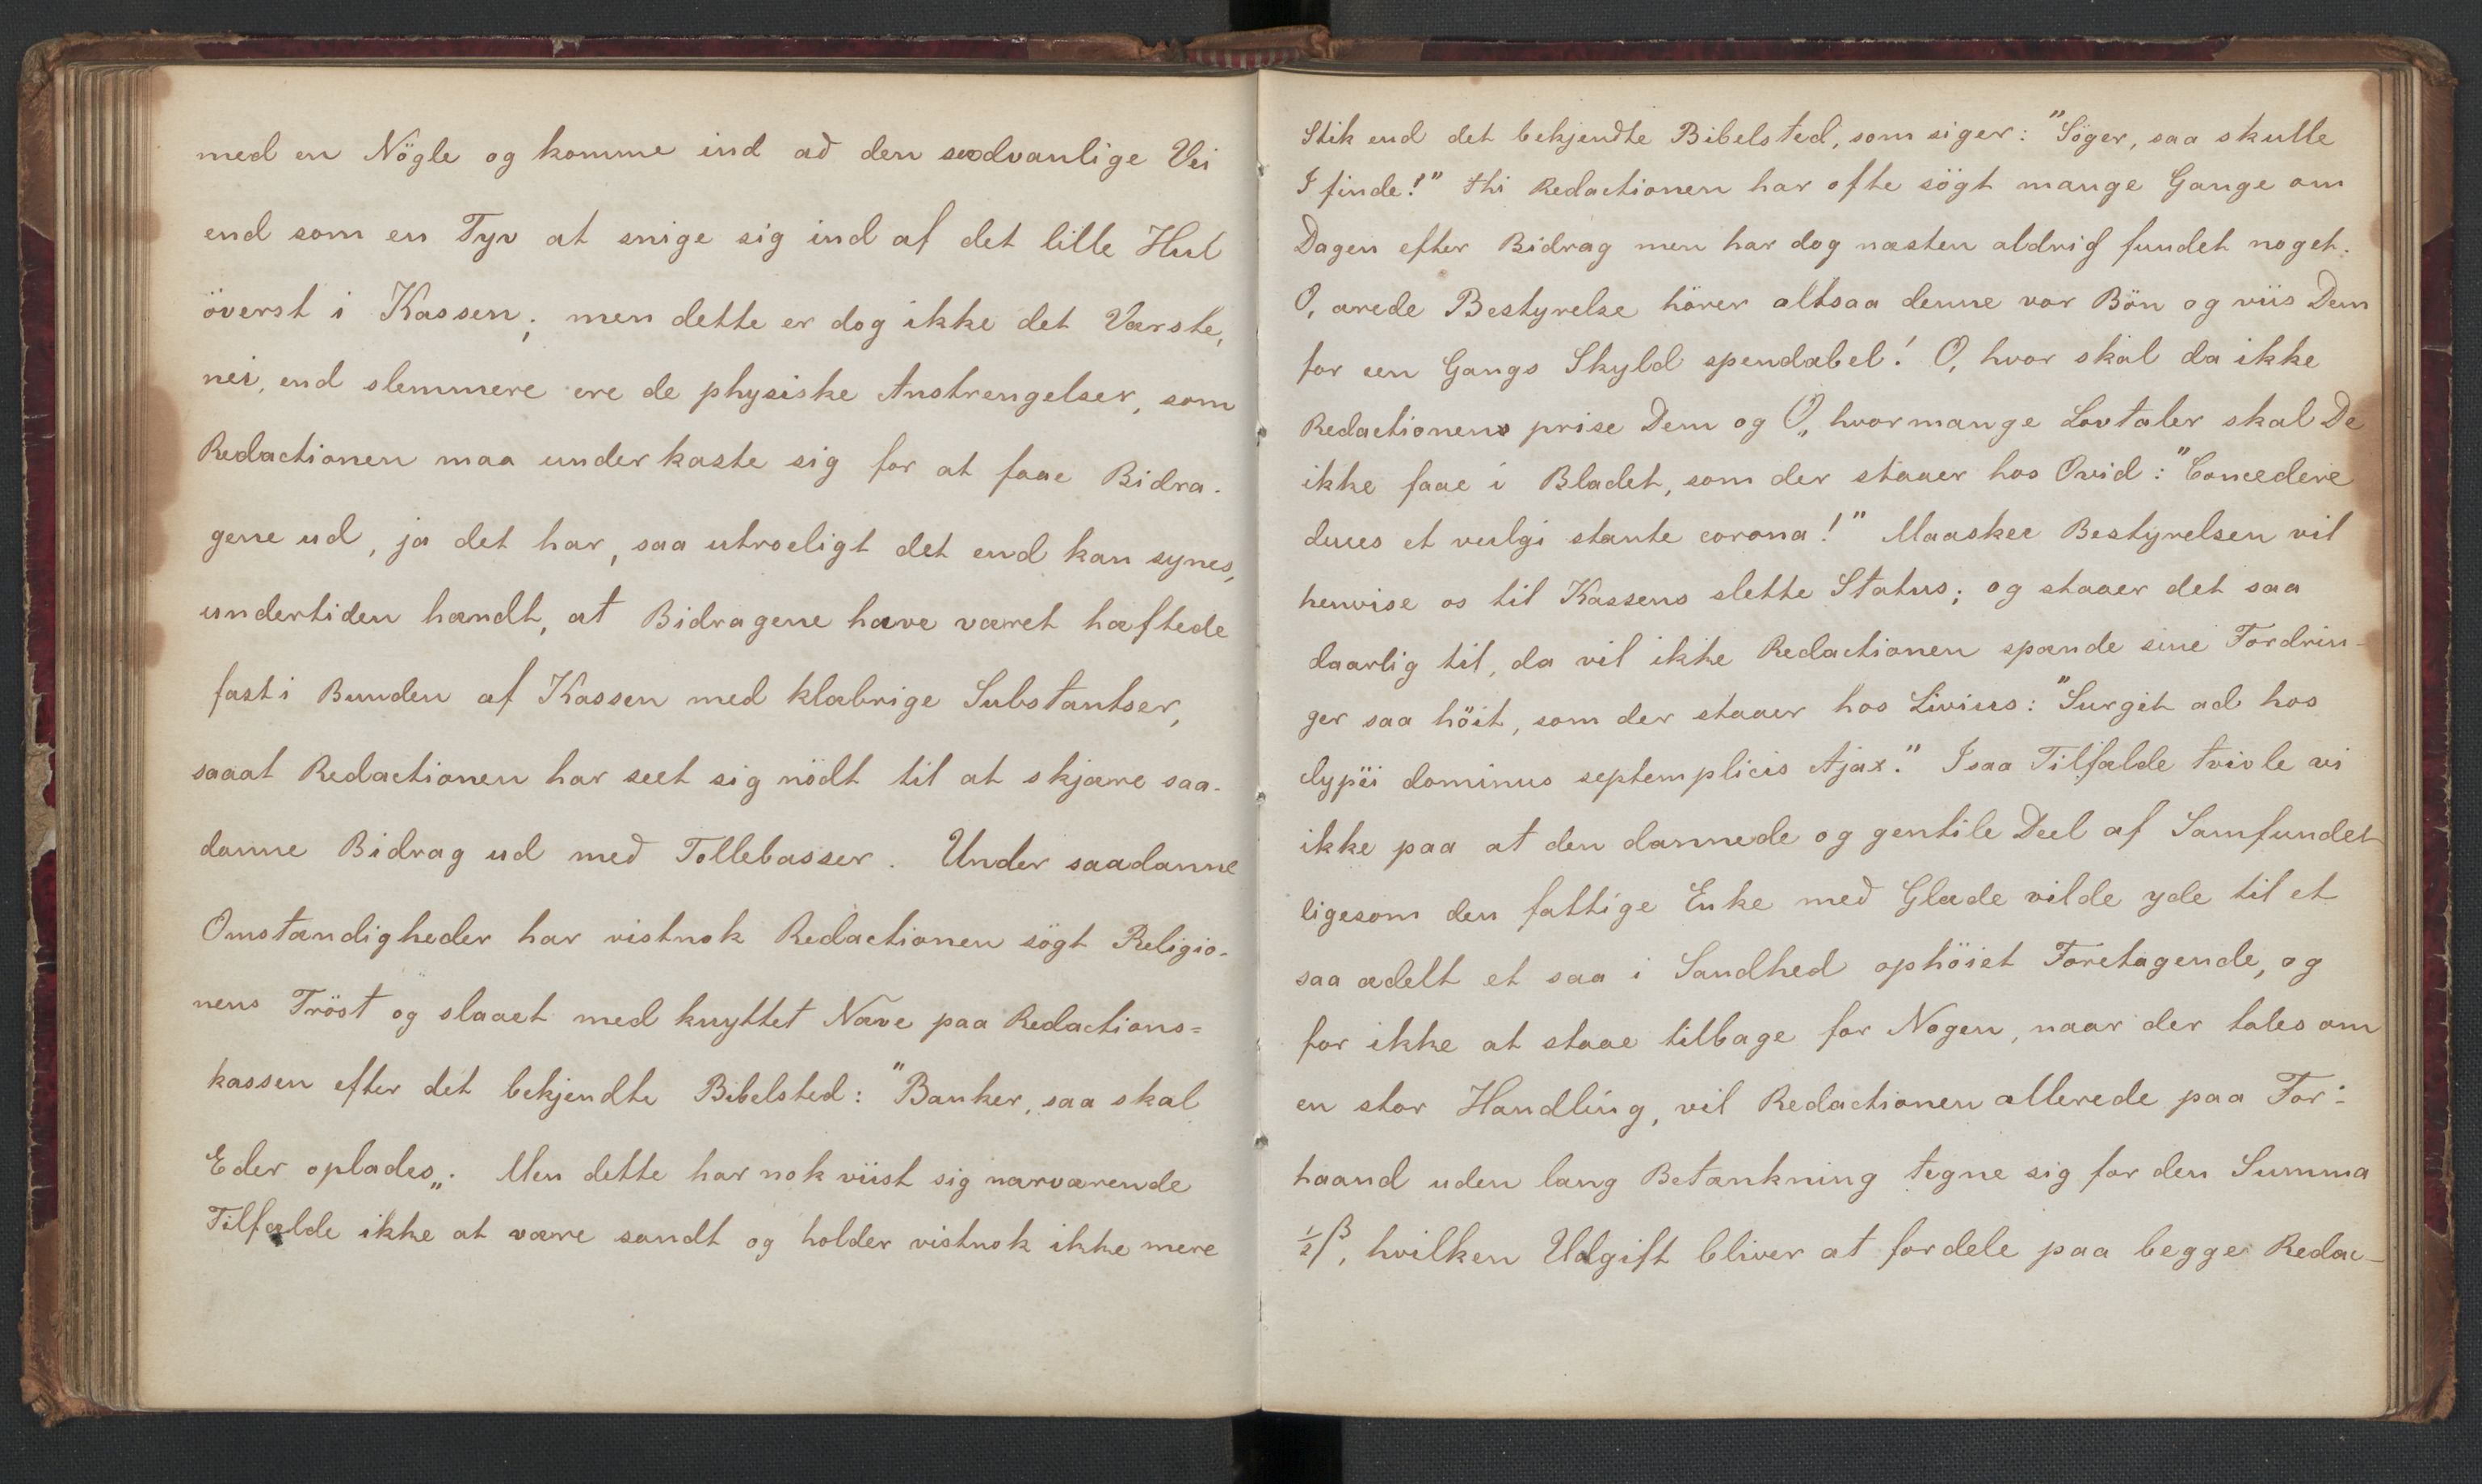 med en Nögle og komme ind ad den sædvanlige Vei
end som en Tyv at snige sig ind af det lille Hul
överst i Kassen; men dette er dog ikke det Værste,
nei, end slemmere ere de physiske Anstrengelser, som
Redactionen maa underkaste sig for at faae Bidra-
gene ud, ja det har, saa utroeligt det end kan synes,
undertiden hændt, at Bidragene have været hæftede
fast i Bunden af Kassen med klæbrige Substantser,
saaat Redactionen har seet sig nödt til at skjære saa-
danne Bidrag ud med Tollebasser. Under saadanne
Omstændigheder har vistnok Redactionen sögt Religio-
nens Tröst og slaaet med knyttet Næve paa Redactions=
kassen efter det bekjendte Bibelsted: "Banker, saa skal
Eder oplades„. Men dette har nok viist sig nærværende
Tilfælde ikke at være sandt og holder vistnok ikke mere
Stik end det bekjendte Bibelsted, som siger: "Söger, saa skulle
I finde!" thi Redactionen har ofte sögt mange Gange om
Dagen efter Bidrag men har dog næsten aldrig fundet noget.
O, ærede Bestyrelse hörer altsaa denne vor Bön og viis Dem
for een Gangs Skyld spendabel! O, hvor skal da ikke
Redactionen prise Dem og O„ hvormange Lovtaler skal De
ikke faae i Bladet, som der staaer hos Ovid: "Concedere
duces et vulgi stante corona!" Maaskee Bestyrelsen vil
henvise os til Kassens slette Status; og staaer det saa
daarlig til, da vil ikke Redactionen spænde sine Fordrin-
ger saa höit, som der staaer hos Livius: "Surgit ad hos
clypëi dominus septemplicis Ajax." I saa Tilfælde tvivle vi
ikke paa at den dannede og gentile Deel af Samfundet
ligesom den fattige Enke med Glæde vilde yde til et
saa ædelt et saa i Sandhed ophöiet Foretagende, og
for ikke at staae tilbage for Nogen, naar der tales om
en stor Handling, vil Redactionen allerede paa For=
haand uden lang Betænkning tegne sig for den Summa
½ β, hvilken Udgift bliver at fordele paa begge Redac-